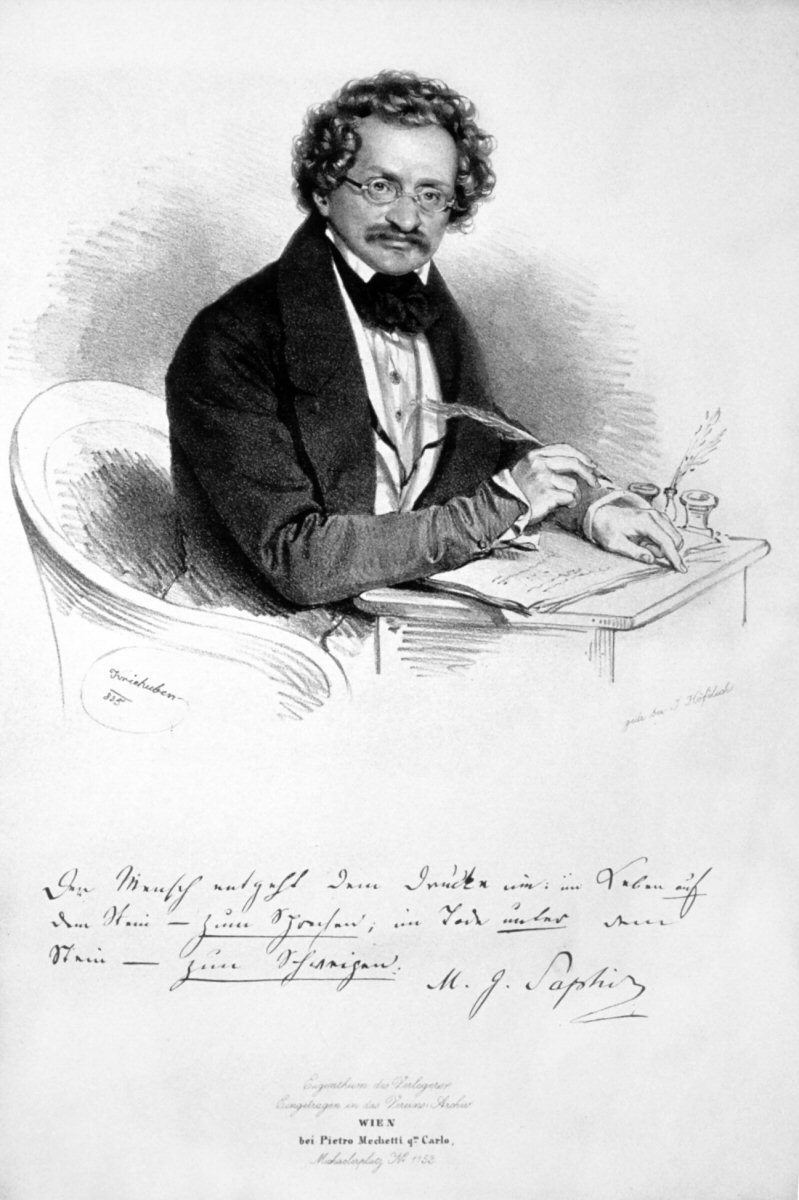 Kriehuber
835
gedr. bei J. Höfelich
Der Mensch entgeht dem Drucke nie: im Leben auf
dem Stein — zum Sprechen; im Tode unter dem
Stein — zum Schweigen.
M. G. Saphir
Eigenthum des Verlegers
Eingetragen in das Vereins-Archiv
WIEN
bei Pietro Mechetti qm Carlo,
Michaelerplatz No 1153